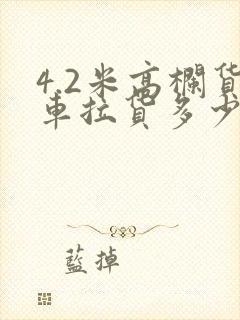 4.2米高欄貨
車拉貨多少
藍掉